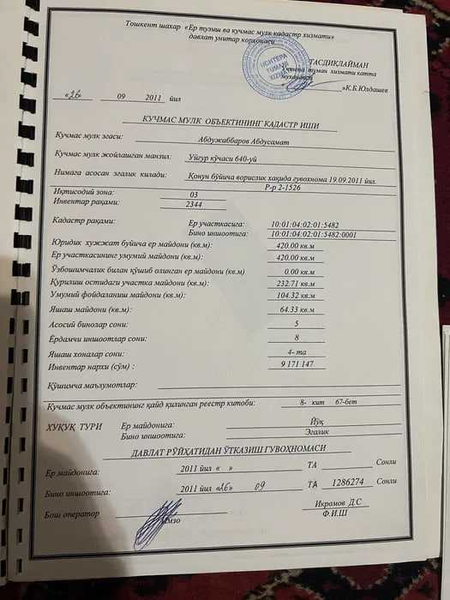 Тошкент шахар «Ер тузиш ва кучмас мулк кадастр хизмати»
давлат унитар корхонаси
ТАСДИКЛАЙМАН
УЧТЕПА
TUMANI
XIZMATI
тумани хизмати катта
«К.Б.Юлдашев
«26» 09 2011 йил
КУЧМАС МУЛК ОБЪЕКТИНИНГ КАДАСТР ИШИ
Кучмас мулк эгаси: Абдужабборов Абдусамат
Кучмас мулк жойлашган манзил: Уйгур кўчаси 640-уй
Нимага асосан эгалик килади: Қонун бўйича ворислик хақида гувохнома 19.09.2011 йил.
Р-р 2-1526
Иқтисодий зона: 03
Инвентар рақами: 2344
Кадастр рақами: Ер участкасига: 10:01:04:02:01:5482
Бино иншоотига: 10:01:04:02:01:5482:0001
Юридик хужжат буйича ер майдони (кв.м): 420.00 кв.м
Ер участкасининг умумий майдони (кв.м): 420.00 кв.м
Ўзбошимчалик билан қўшиб олинган ер майдони (кв.м) 0.00 кв.м
Қурилиш остидаги участка майдони (кв.м): 232.71 кв.м
Умумий фойдаланиш майдони (кв.м): 104.32 кв.м
Яшаш майдони (кв.м): 64.33 кв.м
Асосий бинолар сони: 5
Ёрдамчи иншоотлар сони: 8
Яшаш хоналар сони: 4- та
Инвентар нархи (сўм) : 9 171 147
Қўшимча маълумотлар:
Кучмас мулк объектининг қайд қилинган реестр китоби: 8- кит 67-бет
ХУҚУҚ ТУРИ Ер майдонига: Йўқ
Бино иншоотига: Эгалик
ДАВЛАТ РЎЙХАТИДАН ЎТКАЗИШ ГУВОҲНОМАСИ
Ер майдонига: 2011 йил « » ТА Сонли
Бино иншоотига: 2011 йил «26» 09 ТА 1286274 Сонли
Бош оператор Икрамов Д.С
Имзо Ф.И.Ш